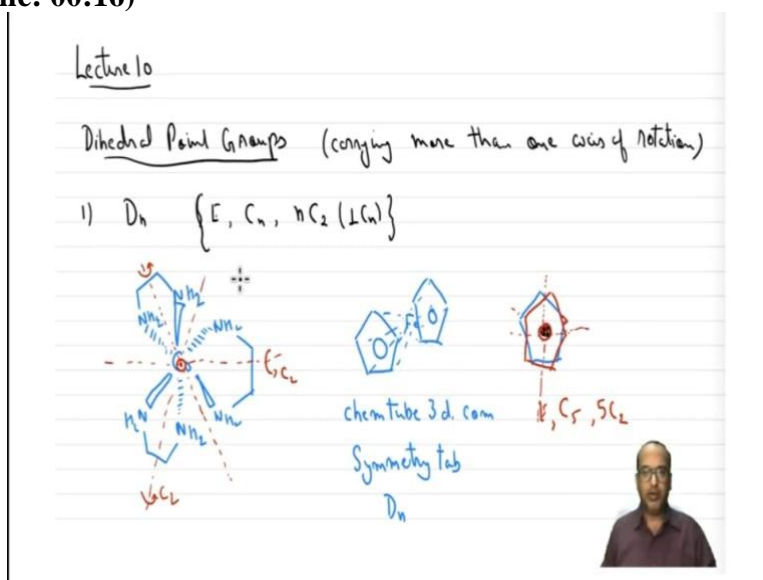 Lecture 10
Dihedral Point Groups (carrying more than one axis of rotation)
1) Dn {E, Cn, nC2 (⊥Cn)}
NH2
NH2
NH2
E, C2
NH2
H2N
NH2
C2
Fe
chemtube3d.com
Symmetry tab
Dn
E, C5, 5C2